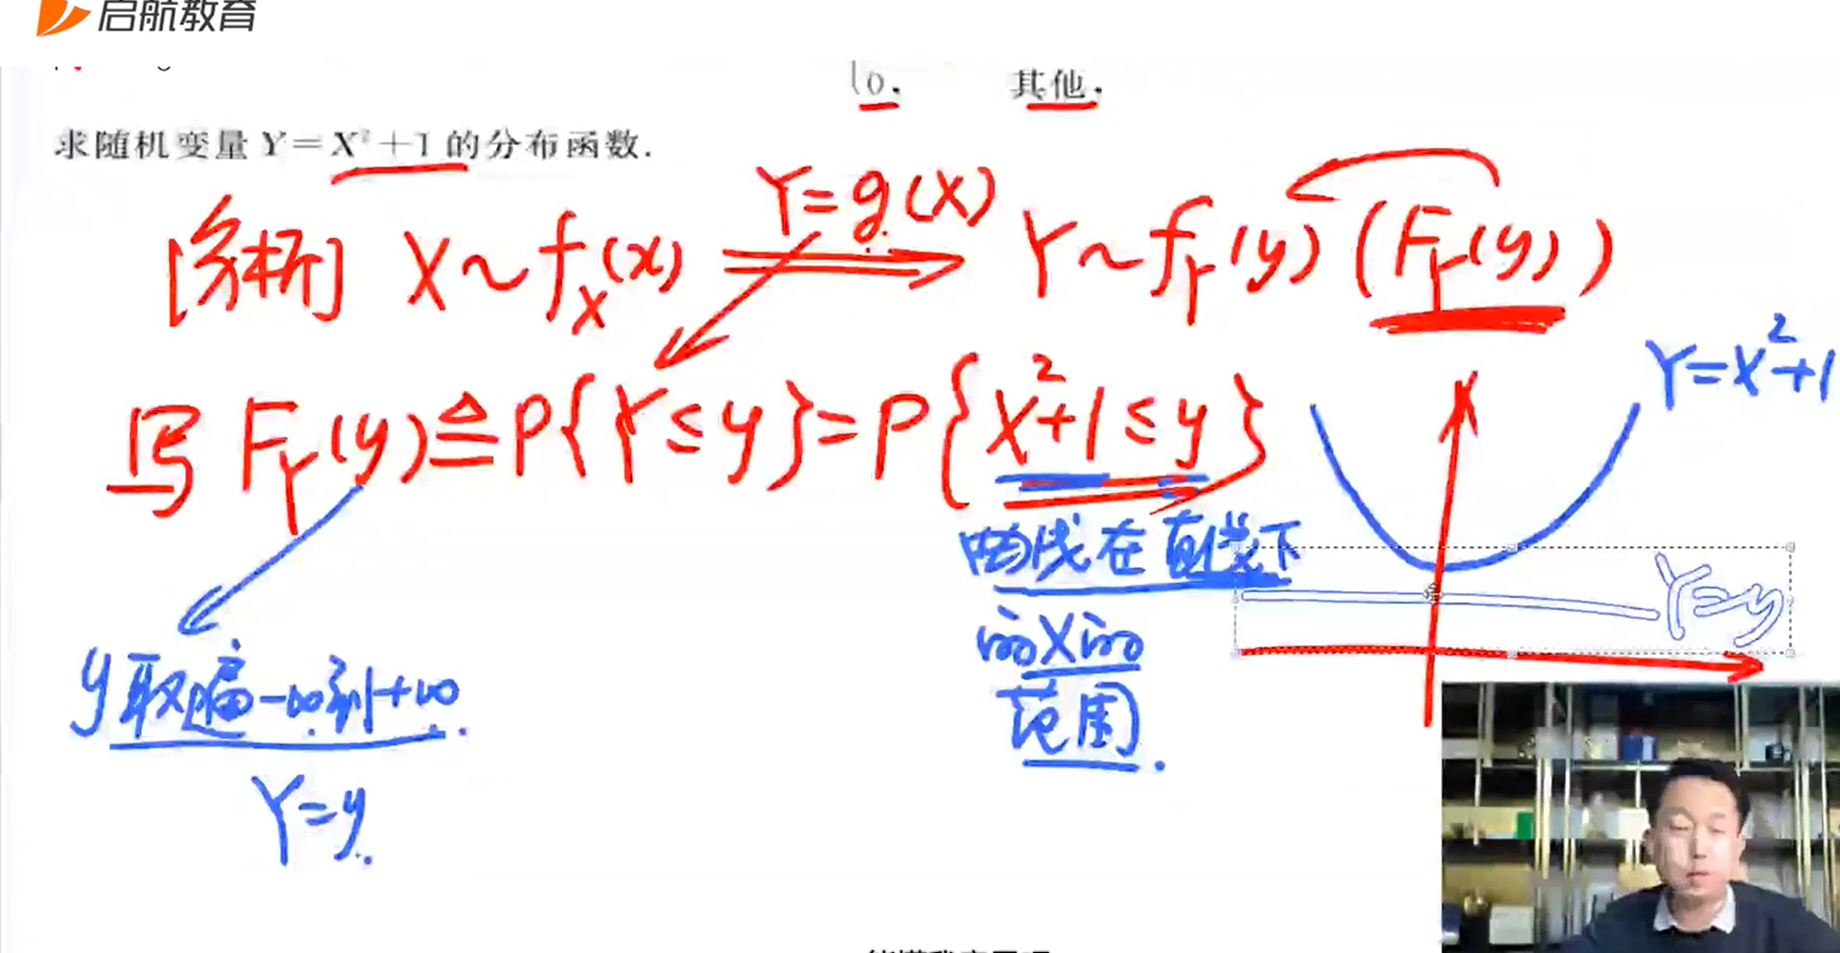 启航教育
0, 其他,
求随机变量 Y=X²+1 的分布函数.
[分析] X~f_X(x) Y=g(X) Y~f_Y(y) (F_Y(y))
写 F_Y(y)≙P{Y≤y}=P{X²+1≤y}
Y=X²+1
曲线在直线下
的X的
范围.
Y=y
y取遍-∞到+∞.
Y=y.